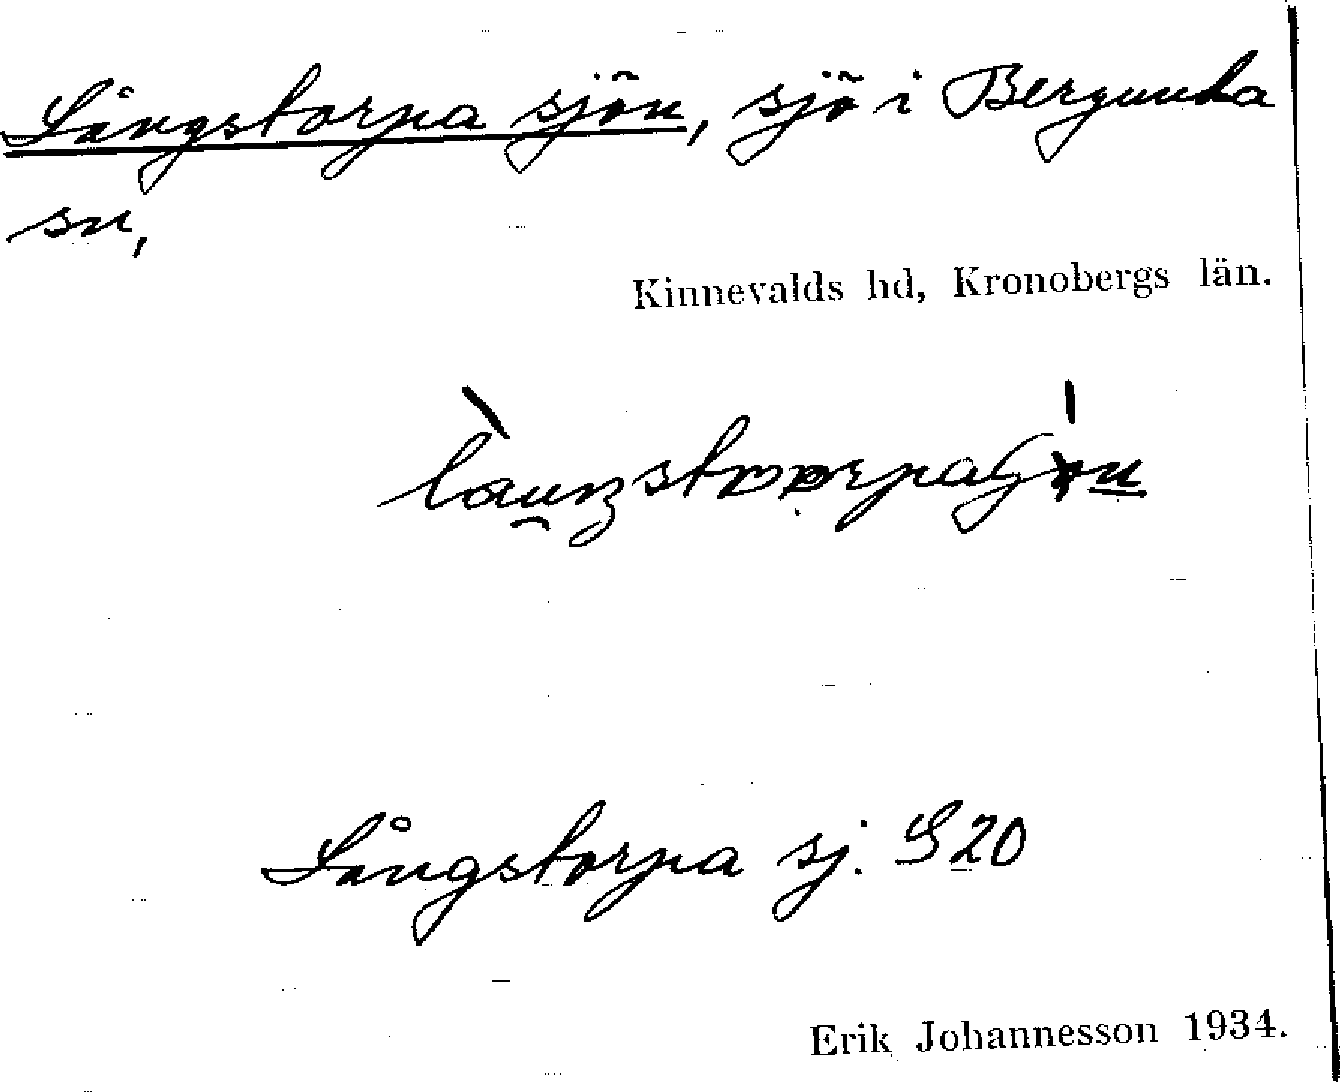 Långstorpa sjön, sjö i Bergunda
sn,
Kinnevalds hd, Kronobergs län.
Långstorpa sj. S 20
Erik Johannesson 1934.